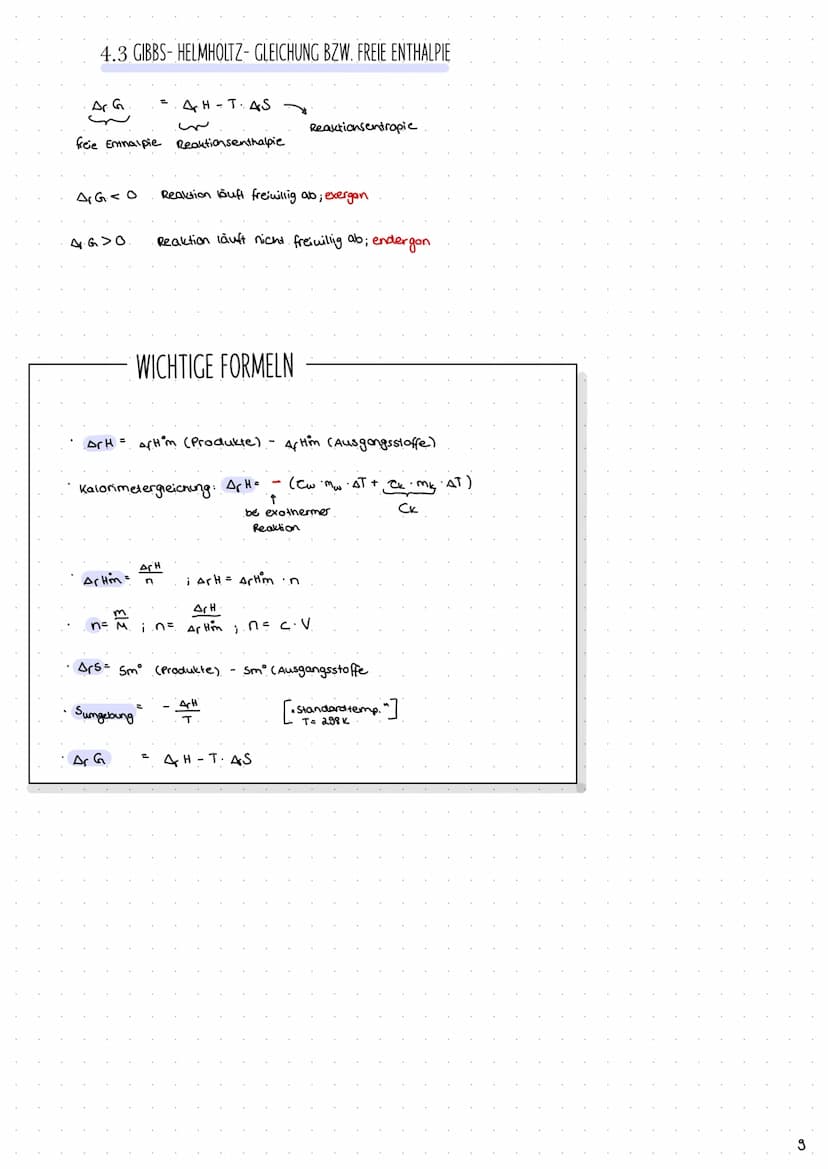 4.3 GIBBS- HELMHOLTZ- GLEICHUNG BZW. FREIE ENTHALPIE
ΔrG = ΔrH - T · ΔrS → Reaktionsentropie
freie Enthalpie Reaktionsenthalpie
ΔrG < 0 Reaktion läuft freiwillig ab; exergon
ΔrG > 0 Reaktion läuft nicht freiwillig ab; endergon
WICHTIGE FORMELN
· ΔrH = ΔfH°m (Produkte) - ΔfH°m (Ausgangsstoffe)
· Kalorimetergleichung: ΔrH = - (cw · mw · ΔT + ck · mk · ΔT)
↑ Ck
bei exothermer
Reaktion
· ΔrH°m = ΔrH/n ; ΔrH = ΔrH°m · n
· n = m/M ; n = ΔrH/ΔrH°m ; n = c · V
· ΔrS = Sm° (Produkte) - Sm° (Ausgangsstoffe
· Sumgebung = - ΔrH/T ["Standardtemp."]
T = 298 K
· ΔrG = ΔrH - T · ΔrS
9